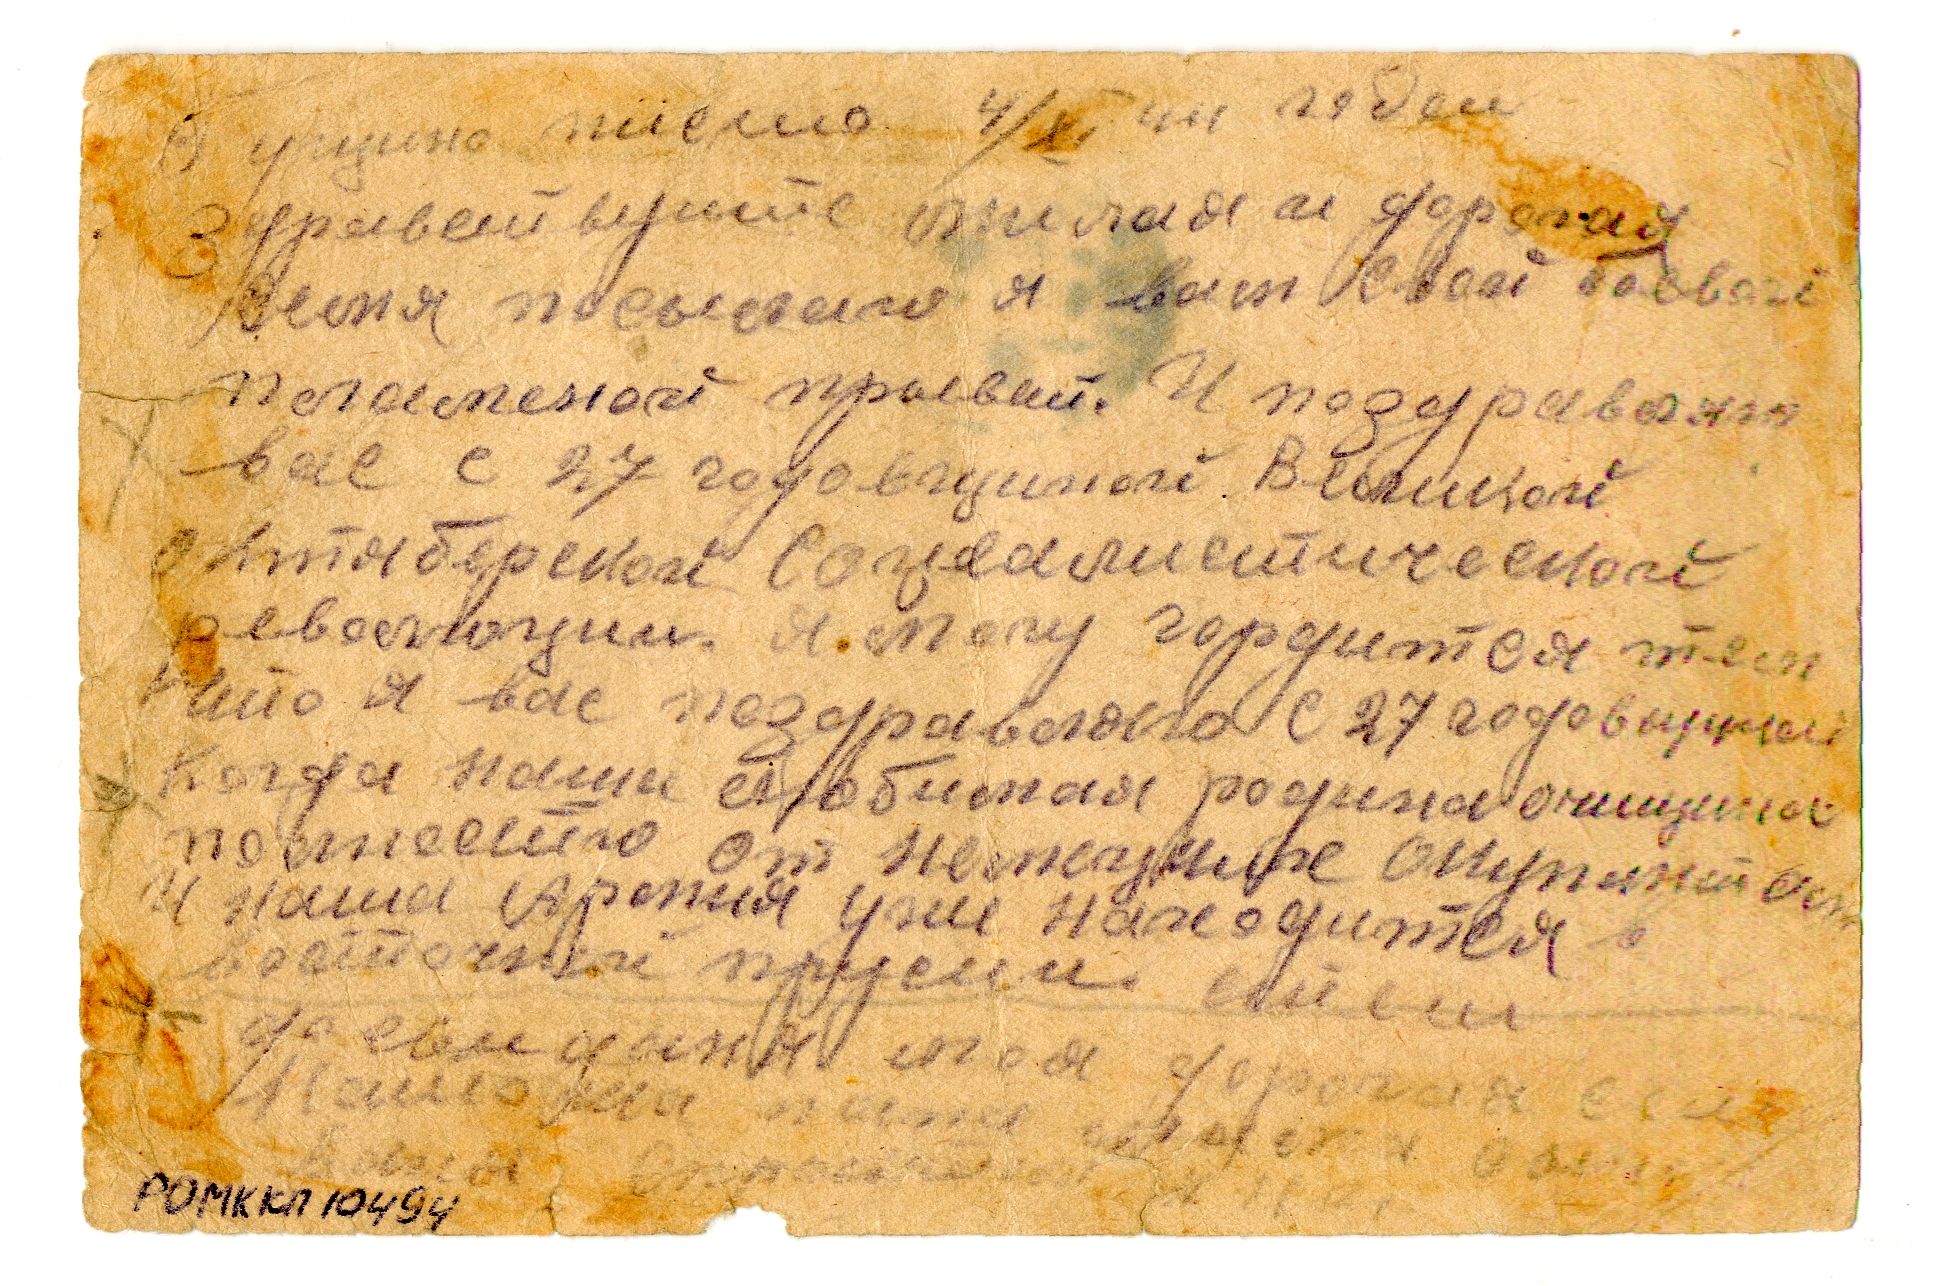 писмо 4/XI 44 годом
Здравствуйте милая и дорогая
Зеня посылаю я вам свой боевой
пламеной прывет. И поздравляю
вас с 27 годовщиной Великой
октяберской Социалистической
революции. Я могу гордится тем
што я вас поздравляю с 27 годовщиной
Когда наша любимая родина очищина
полностю от немецких окупантов
И наша Армия уже находится в
восточной прусии.
досвидания моя дорогая
РОМК КП 10494